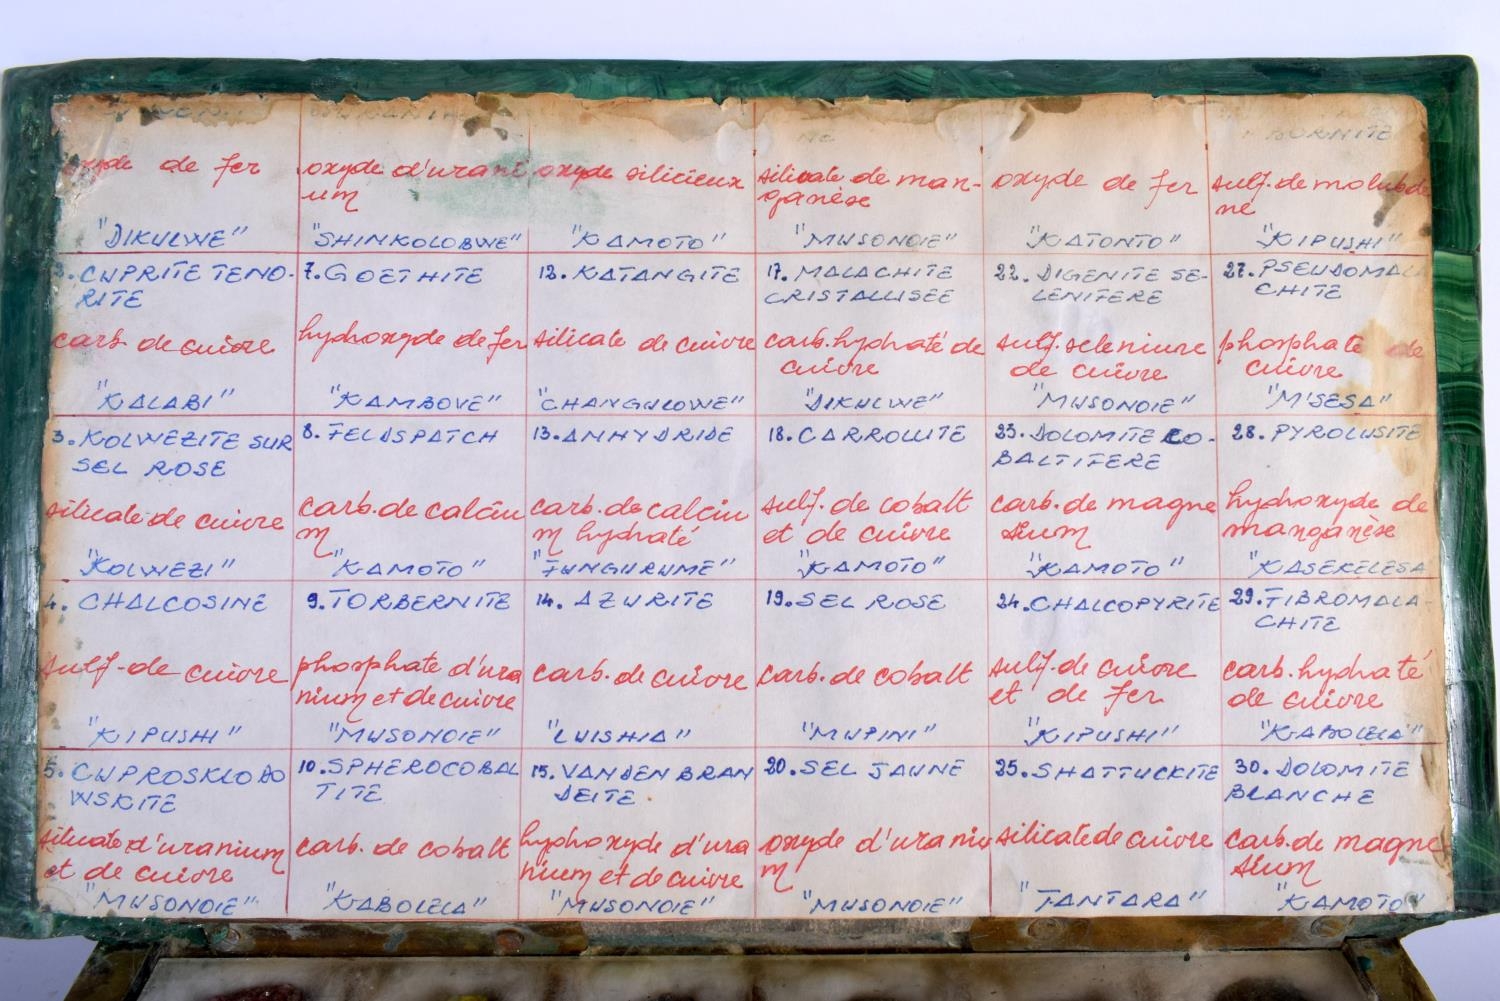 oxyde de fer
"DIKULWE"
oxyde d'urani
um
"SHINKOLOBWE"
oxyde silicieux
"KAMOTO"
silicate de man-
ganèse
"MUSONOIE"
oxyde de fer
"KATONTO"
BORNITE
sulf. de molubde
ne
"KIPUSHI"
2. CUPRITE TENO-
RITE
carb. de cuivre
"KALABI"
7. GOETHITE
hydroxyde de fer
"KAMBOVE"
12. KATANGITE
silicate de cuivre
"CHANGULOWE"
17. MALACHITE
CRISTALLISEE
carb. hydraté de
cuivre
"DIKULWE"
22. DIGENITE SE-
LENIFERE
sulf. seleniure
de cuivre
"MUSONOIE"
27. PSEUDOMALA
CHITE
phosphate de
cuivre
"M'SESA"
3. KOLWEZITE SUR
SEL ROSE
silicate de cuivre
"KOLWEZI"
8. FELDSPATCH
carb. de calciu
m
"KAMOTO"
13. ANHYDRIDE
carb. de calciu
m hydraté
"FUNGURUME"
18. CARROLLITE
sulf. de cobalt
et de cuivre
"KAMOTO"
23. DOLOMITE CO-
BALTIFERE
carb. de magne
sium
"KAMOTO"
28. PYROLUSITE
hydroxyde de
manganèse
"KASEKELESA
4. CHALCOSINE
sulf. de cuivre
"KIPUSHI"
9. TORBERNITE
phosphate d'ura
nium et de cuivre
"MUSONOIE"
14. AZURITE
carb. de cuivre
"LUISHIA"
19. SEL ROSE
carb. de cobalt
"MUPINI"
24. CHALCOPYRITE
sulf. de cuivre
et de fer
"KIPUSHI"
29. FIBROMALA-
CHITE
carb. hydraté
de cuivre
"KABOLELA"
5. CUPROSKLODO
WSKITE
silicate d'uranium
et de cuivre
"MUSONOIE"
10. SPHEROCOBAL
TITE
carb. de cobalt
"KABOLELA"
15. VANDENBRAN
DEITE
hydroxyde d'ura
nium et de cuivre
"MUSONOIE"
20. SEL JAUNE
oxyde d'uraniu
m
"MUSONOIE"
25. SHATTUCKITE
silicate de cuivre
"TANTARA"
30. DOLOMITE
BLANCHE
carb. de magne
sium
"KAMOTO"